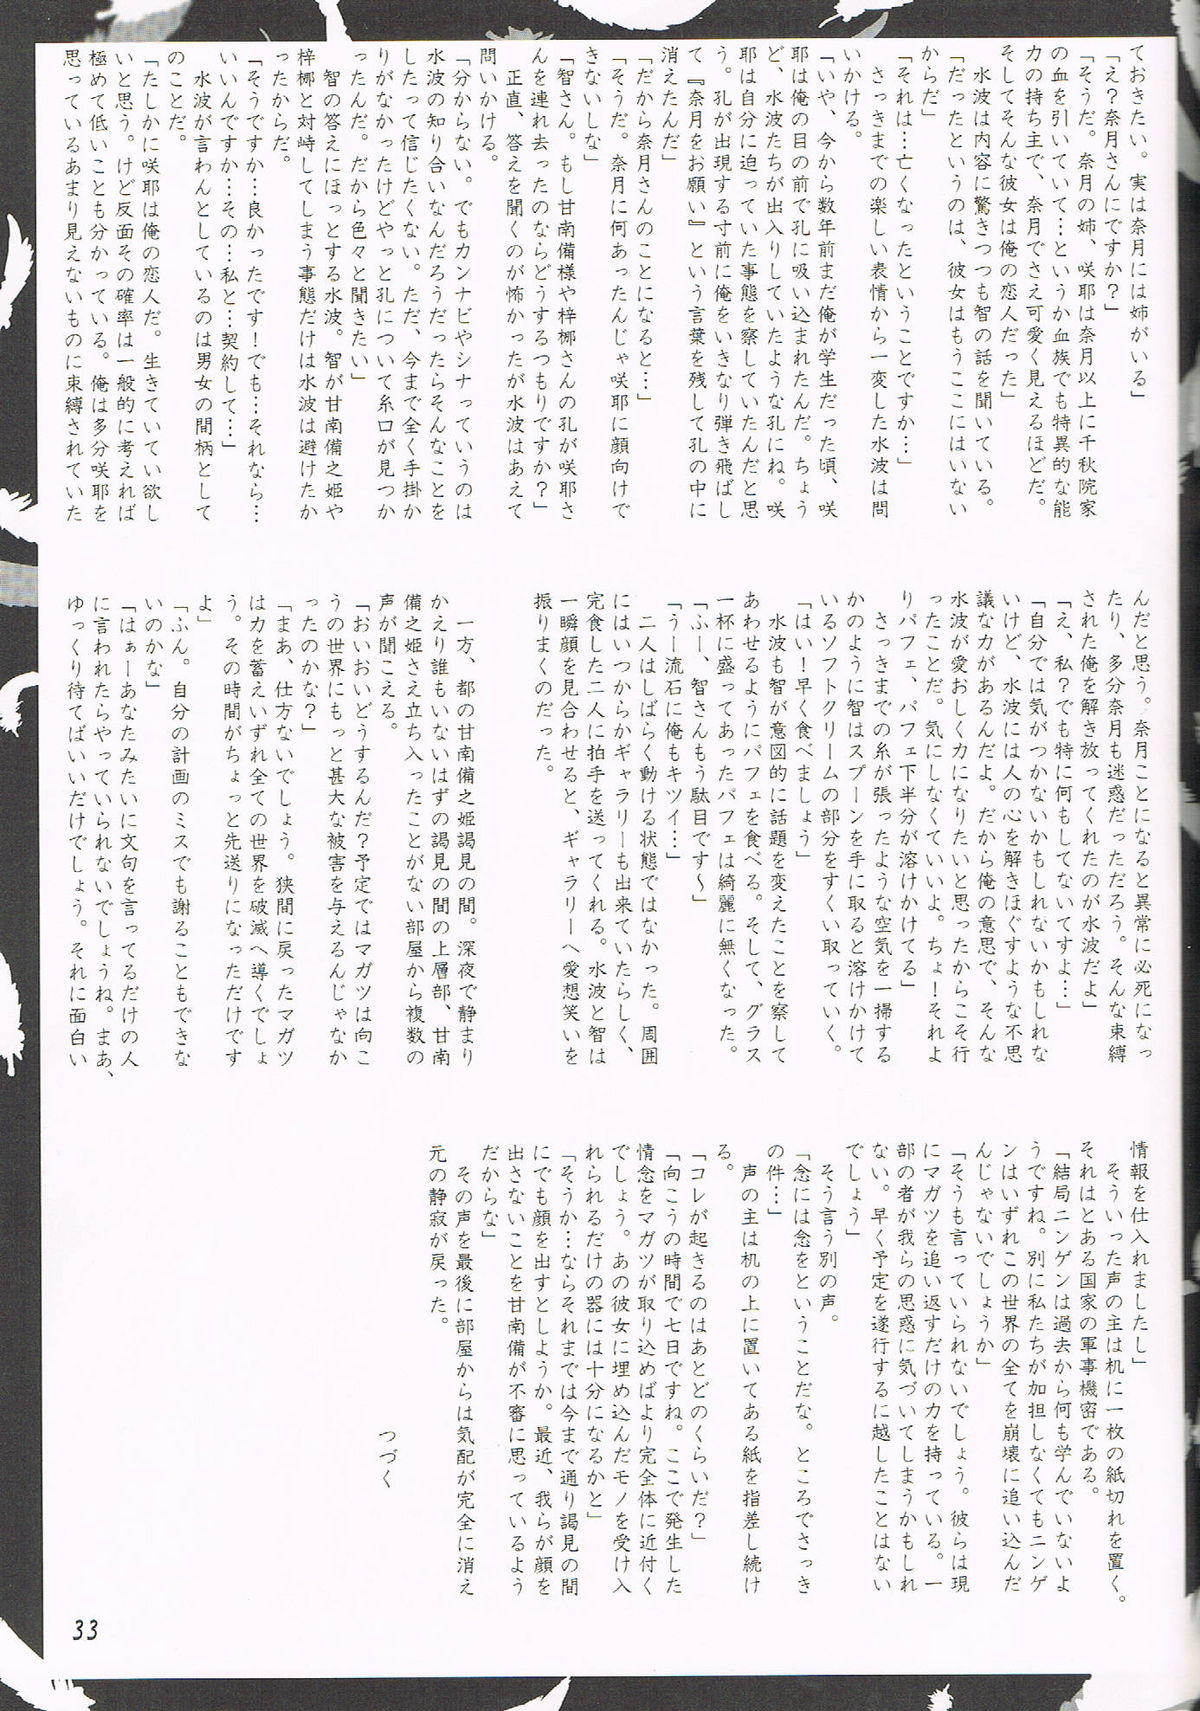 ておきたい。実は奈月には姉がいる」
「え？奈月さんにですか？」
「そうだ。奈月の姉、咲耶は奈月以上に千秋院家
の血を引いていて…というか血族でも特異的な能
力の持ち主で、奈月でさえ可愛く見えるほどだ。
そしてそんな彼女は俺の恋人だった」
　水波は内容に驚きつつも智の話を聞いている。
「だったというのは、彼女はもうここにはいない
からだ」
「それは…亡くなったということですか…」
　さっきまでの楽しい表情から一変した水波は問
いかける。
「いや、今から数年前まだ俺が学生だった頃、咲
耶は俺の目の前で孔に吸い込まれたんだ。ちょう
ど、水波たちが出入りしていたような孔にね。咲
耶は自分に迫っていた事態を察していたんだと思
う。孔が出現する寸前に俺をいきなり弾き飛ばし
て『奈月をお願い』という言葉を残して孔の中に
消えたんだ」
「だから奈月さんのことになると…」
「そうだ。奈月に何あったんじゃ咲耶に顔向けで
きないしな」
「智さん。もし甘南備様や梓梛さんの孔が咲耶さ
んを連れ去ったのならどうするつもりですか？」
　正直、答えを聞くのが怖かったが水波はあえて
問いかける。
「分からない。でもカンナビやシナっていうのは
水波の知り合いなんだろうだったらそんなことを
したって信じたくない。ただ、今まで全く手掛か
りがなかったけどやっと孔について糸口が見つか
ったんだ。だから色々と聞きたい」
　智の答えにほっとする水波。智が甘南備之姫や
梓梛と対峙してしまう事態だけは水波は避けたか
ったからだ。
「そうですか…良かったです！でも…それなら…
いいんですか…その…私と…契約して…」
　水波が言わんとしているのは男女の間柄として
のことだ。
「たしかに咲耶は俺の恋人だ。生きていて欲し
いと思う。けど反面その確率は一般的に考えれば
極めて低いことも分かっている。俺は多分咲耶を
思っているあまり見えないものに束縛されていた
んだと思う。奈月ことになると異常に必死になっ
たり、多分奈月も迷惑だっただろう。そんな束縛
された俺を解き放ってくれたのが水波だよ」
「え、私？でも特に何もしてないてすよ…」
「自分では気がつかないかもしれないかもしれな
いけど、水波には人の心を解きほぐすような不思
議な力があるんだよ。だから俺の意思で、そんな
水波が愛おしく力になりたいと思ったからこそ行
ったことだ。気にしなくていいよ。ちょ！それよ
りパフェ、パフェ下半分が溶けかけてる」
　さっきまでの糸が張ったような空気を一掃する
かのように智はスプーンを手に取ると溶けかけて
いるソフトクリームの部分をすくい取っていく。
「はい！早く食べましょう」
　水波も智が意図的に話題を変えたことを察して
あわせるようにパフェを食べる。そして、グラス
一杯に盛ってあったパフェは綺麗に無くなった。
「ふー、智さんもう駄目です～」
「うー流石に俺もキツイ…」
　二人はしばらく動ける状態ではなかった。周囲
にはいつからかギャラリーも出来ていたらしく、
完食した二人に拍手を送ってくれる。水波と智は
一瞬顔を見合わせると、ギャラリーへ愛想笑いを
振りまくのだった。
　一方、都の甘南備之姫謁見の間。深夜で静まり
かえり誰もいないはずの謁見の間の上層部、甘南
備之姫さえ立ち入ったことがない部屋から複数の
声が聞こえる。
「おいおいどうするんだ？予定ではマガツは向こ
うの世界にもっと甚大な被害を与えるんじゃなか
ったのかな？」
「まあ、仕方ないでしょう。狭間に戻ったマガツ
は力を蓄えいずれ全ての世界を破滅へ導くでしょ
う。その時間がちょっと先送りになっただけです
よ」
「ふん。自分の計画のミスでも謝ることもできな
いのかな」
「はぁーあなたみたいに文句を言ってるだけの人
に言われたらやっていられないでしょうね。まあ、
ゆっくり待てばいいだけでしょう。それに面白い
情報を仕入れましたし」
　そういった声の主は机に一枚の紙切れを置く。
それはとある国家の軍事機密である。
「結局ニンゲンは過去から何も学んでいないよ
うですね。別に私たちが加担しなくてもニンゲ
ンはいずれこの世界の全てを崩壊に追い込んだ
んじゃないでしょうか」
「そうも言っていられないでしょう。彼らは現
にマガツを追い返すだけの力を持っている。一
部の者が我らの思惑に気づいてしまうかもしれ
ない。早く予定を遂行するに越したことはない
でしょう」
　そう言う別の声。
「念には念をということだな。ところでさっき
の件…」
　声の主は机の上に置いてある紙を指差し続け
る。
「コレが起きるのはあとどのくらいだ？」
「向こうの時間で七日ですね。ここで発生した
情念をマガツが取り込めばより完全体に近付く
でしょう。あの彼女に埋め込んだモノを受け入
れられるだけの器には十分になるかと」
「そうか…ならそれまでは今まで通り謁見の間
にでも顔を出すとしようか。最近、我らが顔を
出さないことを甘南備が不審に思っているよう
だからな」
　その声を最後に部屋からは気配が完全に消え
元の静寂が戻った。
つづく
33